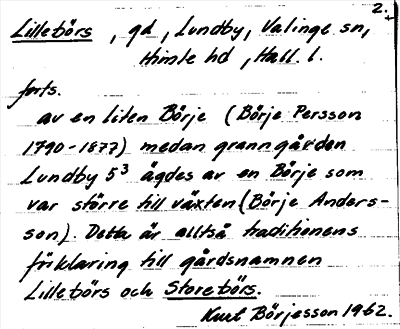 2.
Lillebörs, gd, Lundby, Valinge sn,
Himle hd, Hall. l.
forts.
av en liten Börje (Börje Persson
1790-1877) medan granngården
Lundby 5³ ägdes av en Börje som
var större till växten (Börje Anders-
son). Detta är alltså traditionens
förklaring till gårdsnamnen
Lillebörs och Storebörs.
Kurt Börjesson 1962.